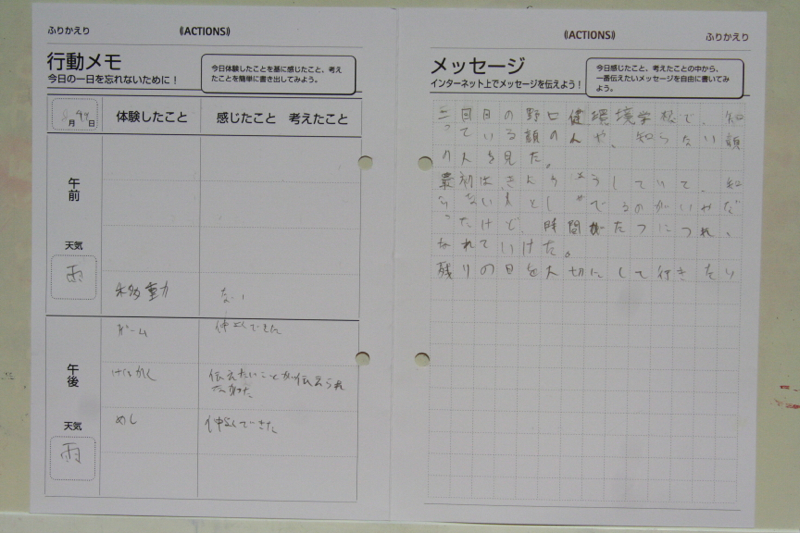 ふりかえり
《ACTIONS》
行動メモ
今日の一日を忘れないために！
今日体験したことを基に感じたこと、考え
たことを簡単に書き出してみよう。
月
日
体験したこと
感じたこと 考えたこと
午前
天気
雨
移動
ない
ゲーム
仲よくできた
伝えたいことが伝えられ
午後
めし
仲よくできた
天気
雨
《ACTIONS》
ふりかえり
メッセージ
インターネット上でメッセージを伝えよう！
今日感じたこと、考えたことの中から、
一番伝えたいメッセージを自由に書いてみ
よう。
二回目の野口健環境学校で、知
っている顔の人や、知らない顔
の人を見た。
最初は、きんちょうしていて、知
らない人とし
ったけど、時間がたつにつれ、
なれていけた。
残りの日を大切にして行きたい